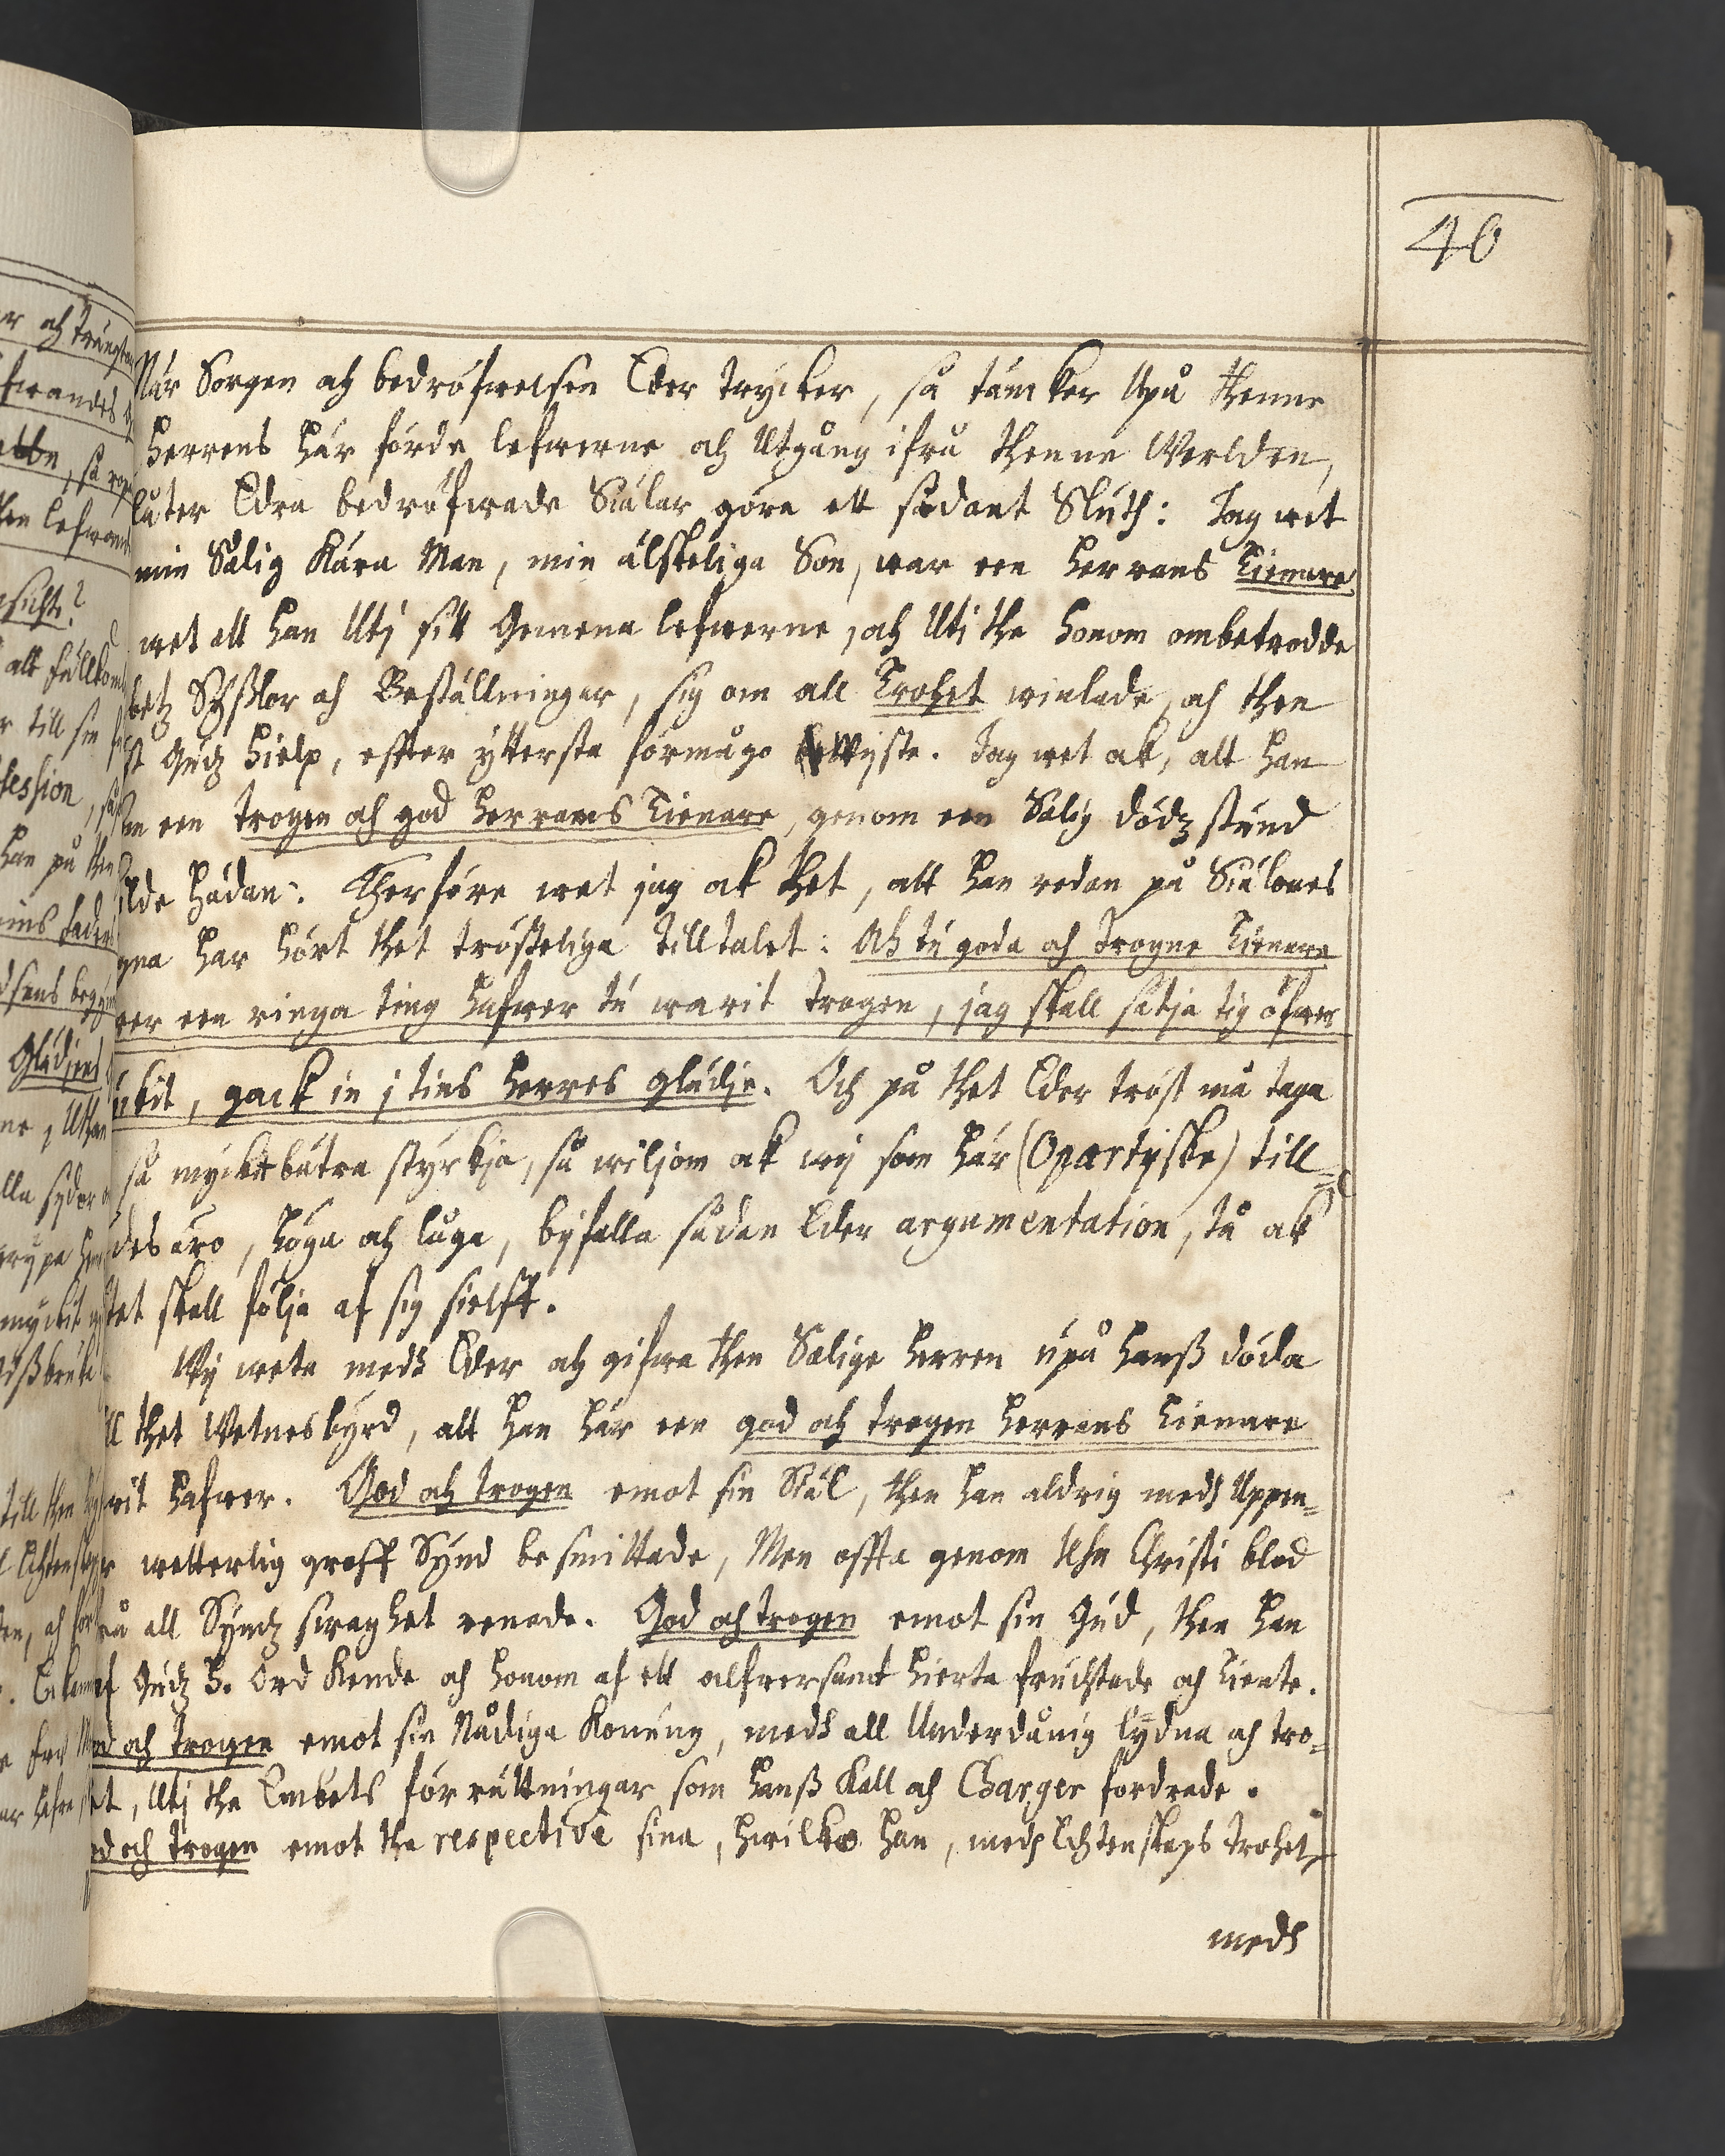 40
När Sorgen och bedröfwelsen Eder trycker, så täncker Upå thenne
Herrens här förde lefwerne och Utgång ifrå thenne Werlden,
låter Edra bedröfwade Siälar göra ett sådant Sluth: Jag wet
min Sålig Kära Man, min älskeliga Son, war een Herrans Tienare
wet att han Utj sitt Gemena lefwerne, och Uti the honom ombetrodde
betz Sÿßlor och Beställningar, sig om all Trohet winlade, och then
st Gudz hielp, effter ÿttersta förmågo Wijste. Jag wet ok, att han
een trogen och god Herrans Tienare, genom een Salig dödz stund
ilde hädan: Therföre wet jag ok thet, att han redan på Siälones
gna har hört thet trösteliga tilltalet: Ah tu goda och Trogne Tienare
wer een ringa ting hafwer tu warit trogen, jag skall sätja tig öfwer
ÿkit, gack in j tins Herres glädje. Och på thet Eder tröst må taga
så mycket bätre styrkja, så wiljom ok wij som här (Opartÿske) till=
des äro, höga och låga, bÿfalla sådan Eder argumentation, tå ok
tet skall följa af sig sielft.
Wÿ weta medh Eder och gifwa then Salige Herren upå hanß döda
ll thet Wetnesbÿrd, att han här een god och trogen Herrans Tienare
rit hafwer. God och trogen emot sin Siäl, then han aldrig medh Uppen=
wetterlig groff Sÿnd besmittade, Men offta genom Jhu Christi blod
rå all Sÿndz swaghet renade. God och trogen emot sin Gud, then han
af Gudz H. Ord Kende och honom af ett alfwersamt hierta fruchtade och tiente.
od och trogen emot sin Nådiga Konung, medh all Underdånig lÿdna och tro=
et, Utj the Embets förrättningar som hanß Kall och Charger fordrade.
od och trogen emot the respectivè sina, hwilka han, medh Echtenskaps trohet,
medh